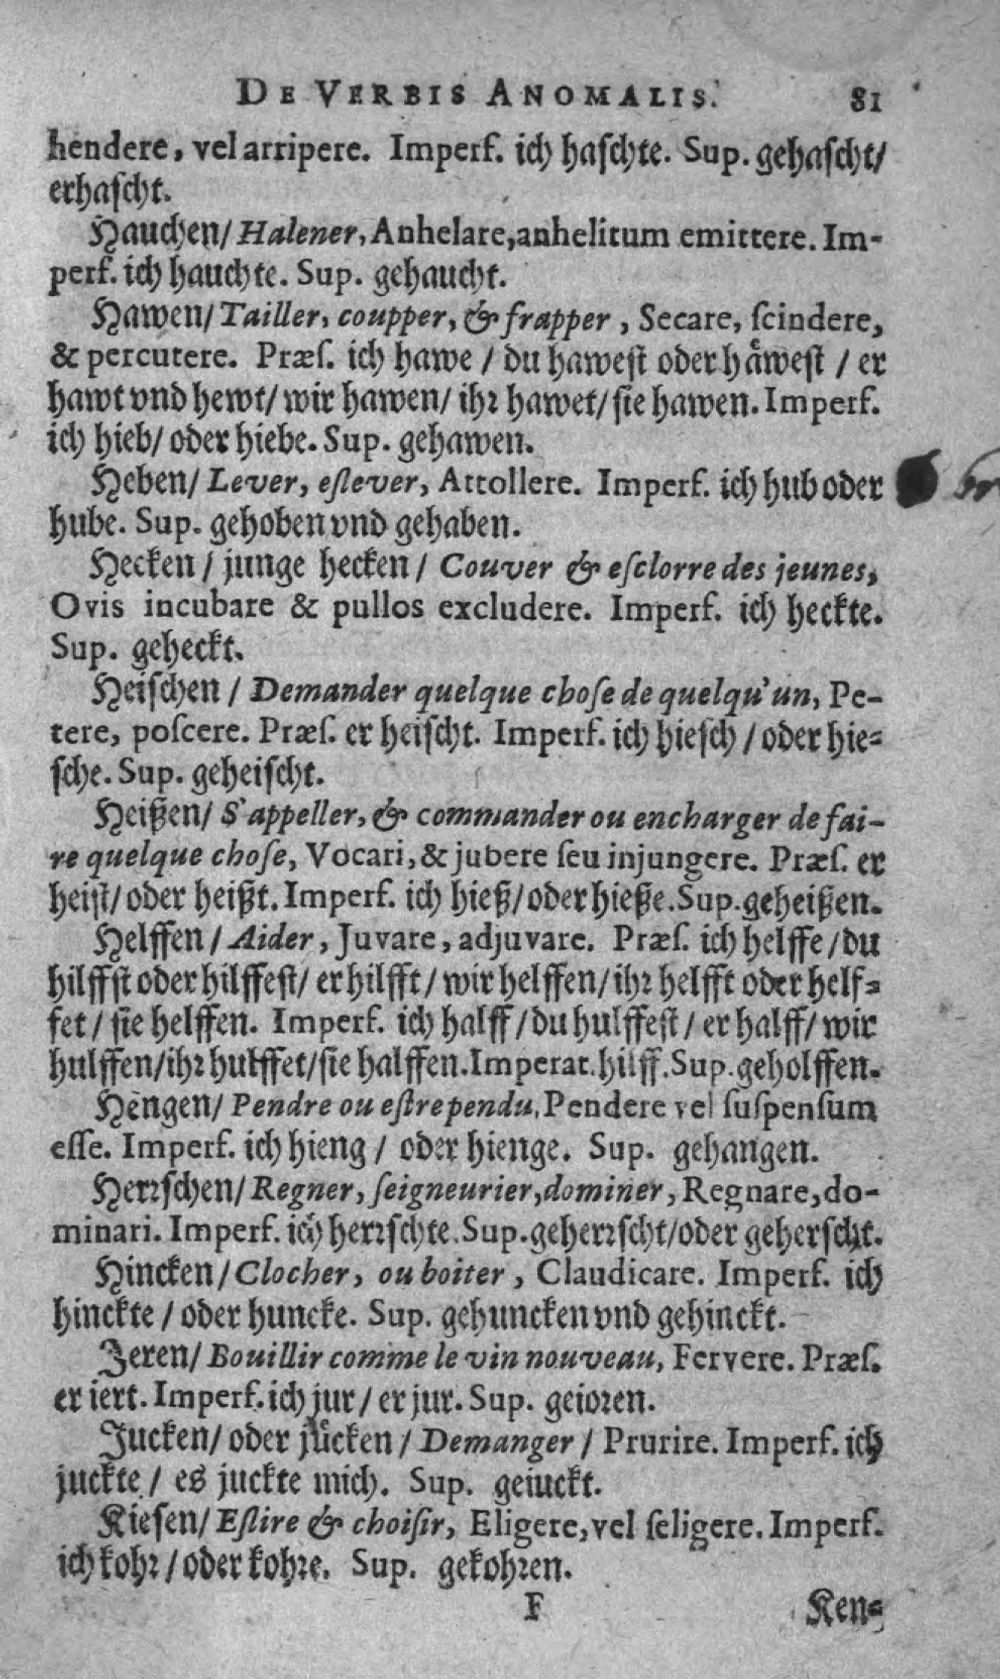 DE VERBIS ANOMALIS. 81
hendere, vel arripere. Imperf. ich haſchte. Sup. gehaſcht/
erhaſcht.
Hauchen/ Halener, Anhelare, anhelitum emittere. Im-
perf. ich hauchte. Sup. gehaucht.
Hawen/ Tailler, coupper, & frapper, Secare, ſcindere,
& percutere. Præſ. ich hawe / du haweſt oder håweſt / er
hawt vnd hewt/ wir hawen/ ihr hawet/ ſie hawen. Imperf.
ich hieb/ oder hiebe. Sup. gehawen.
Heben/ Lever, eſlever, Attollere. Imperf. ich hub oder
hube. Sup. gehoben vnd gehaben.
Hecken / junge hecken / Couver & eſclorre des jeunes,
Ovis incubare & pullos excludere. Imperf. ich heckte.
Sup. geheckt.
Heiſchen / Demander quelque choſe de quelqu'un, Pe-
tere, poſcere. Præſ. er heiſcht. Imperf. ich hieſch / oder hie-
ſche. Sup. geheiſcht.
Heißen/ S'appeller, & commander ou encharger de fai-
re quelque choſe, Vocari, & jubere ſeu injungere. Præſ. er
heiſt/ oder heißt. Imperf. ich hieß/ oder hieße. Sup. geheißen.
Helffen / Aider, Juvare, adjuvare. Præſ. ich helffe / du
hilffſt oder hilffeſt/ er hilfft / wir helffen/ ihr helfft oder helf-
fet / ſie helffen. Imperf. ich halff / du hulffeſt / er halff/ wir
hulffen/ ihr hulffet/ ſie halffen. Imperat. hilff. Sup. geholffen.
Hengen/ Pendre ou eſtre pendu, Pendere vel ſuſpenſum
eſſe. Imperf. ich hieng / oder hienge. Sup. gehangen.
Herrſchen/ Regner, ſeigneurier, dominer, Regnare, do-
minari. Imperf. ich herrſchte. Sup. geherrſcht/ oder geherſcht.
Hincken / Clocher, ou boiter, Claudicare. Imperf. ich
hinckte / oder huncke. Sup. gehuncken vnd gehinckt.
Jeren/ Bouillir comme le vin nouveau, Fervere. Præſ.
er iert. Imperf. ich jur / er jur. Sup. geioren.
Jucken/ oder jücken / Demanger / Prurire. Imperf. ich
juckte / es juckte mich. Sup. geiuckt.
Kieſen/ Eſlire & choiſir, Eligere, vel ſeligere. Imperf.
ich kohr / oder kohre. Sup. gekohren.
F Ken-